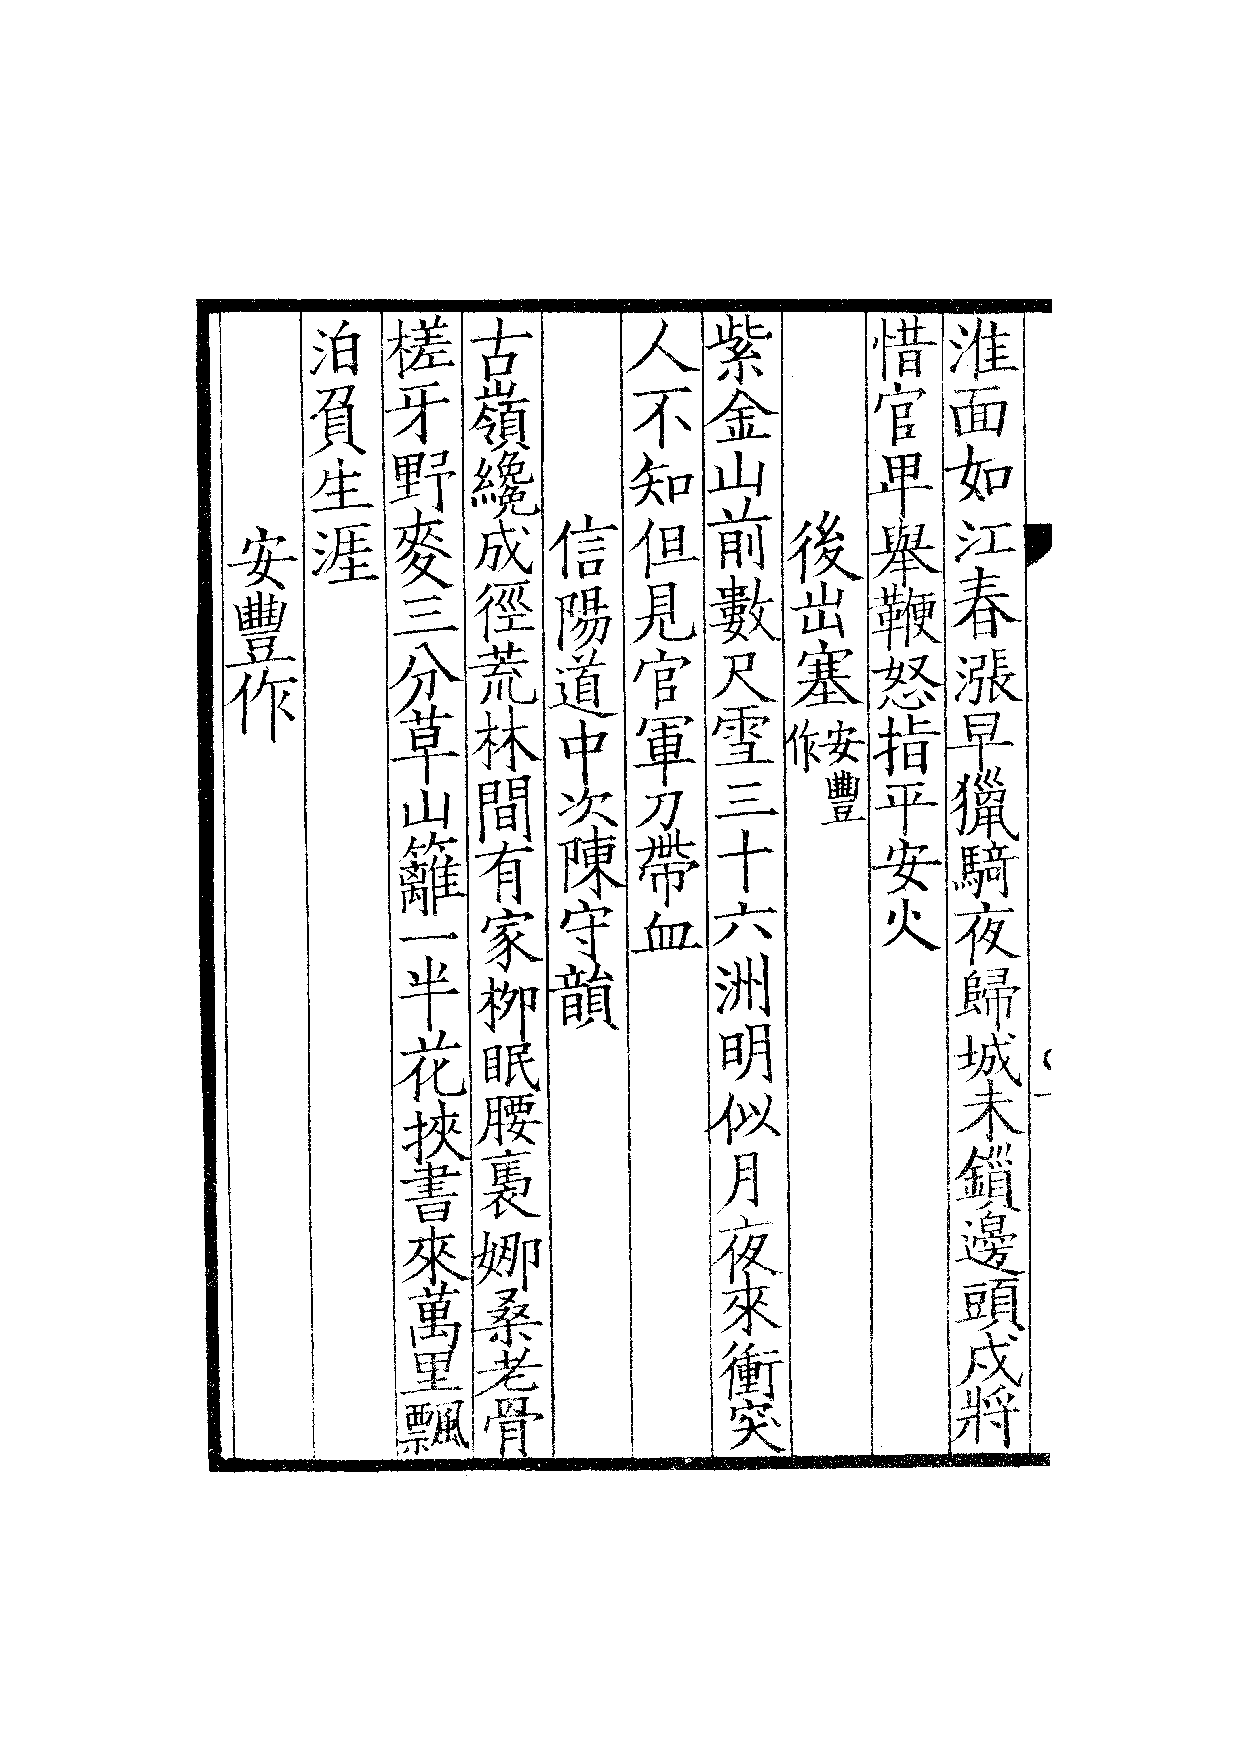 淮面如江春漲早獵騎夜歸城未鎻邊頭戍將
惜官卑舉鞭怒指平安火
後出塞安豐作
紫金山前數尺雪三十六洲明似月夜來衝突
人不知但見官軍刀帶血
信陽道中次陳守韻
古嶺纔成徑荒林間有家柳眠腰裊娜桑老骨
槎牙野麥三分草山籬一半花挾書來萬里飄
泊負生涯
安豐作